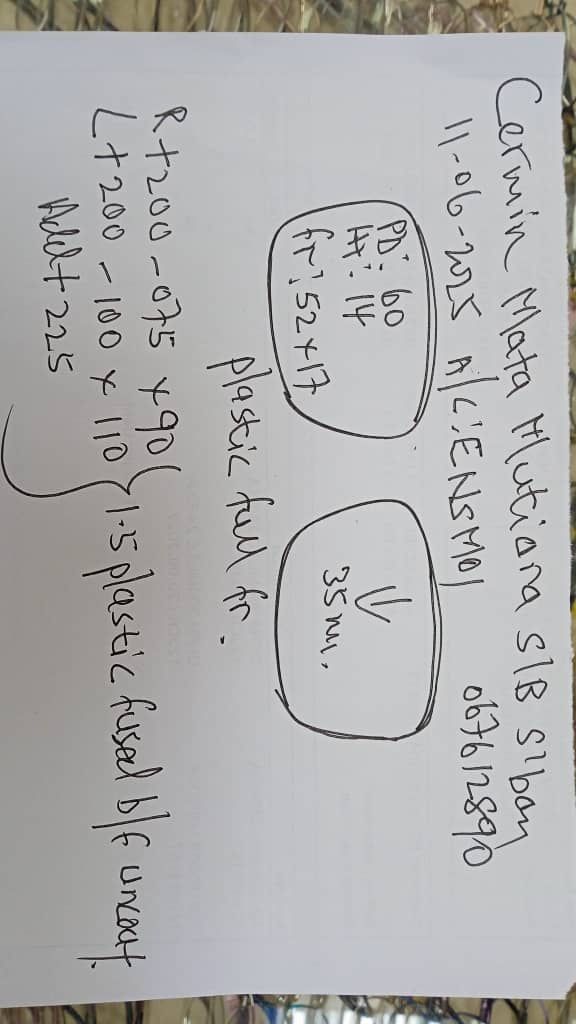 Cermin Mata Mutiara S/B S'ban
11-06-2025 A/C: ENSM01 067612890
PD: 60
Ht: 14
fr: 52 + 17
35 mm.
plastic full fr.
R +200 - 075 x 90
L +200 - 100 x 110
Add + 225
1.5 plastic fused b/f uncoat.